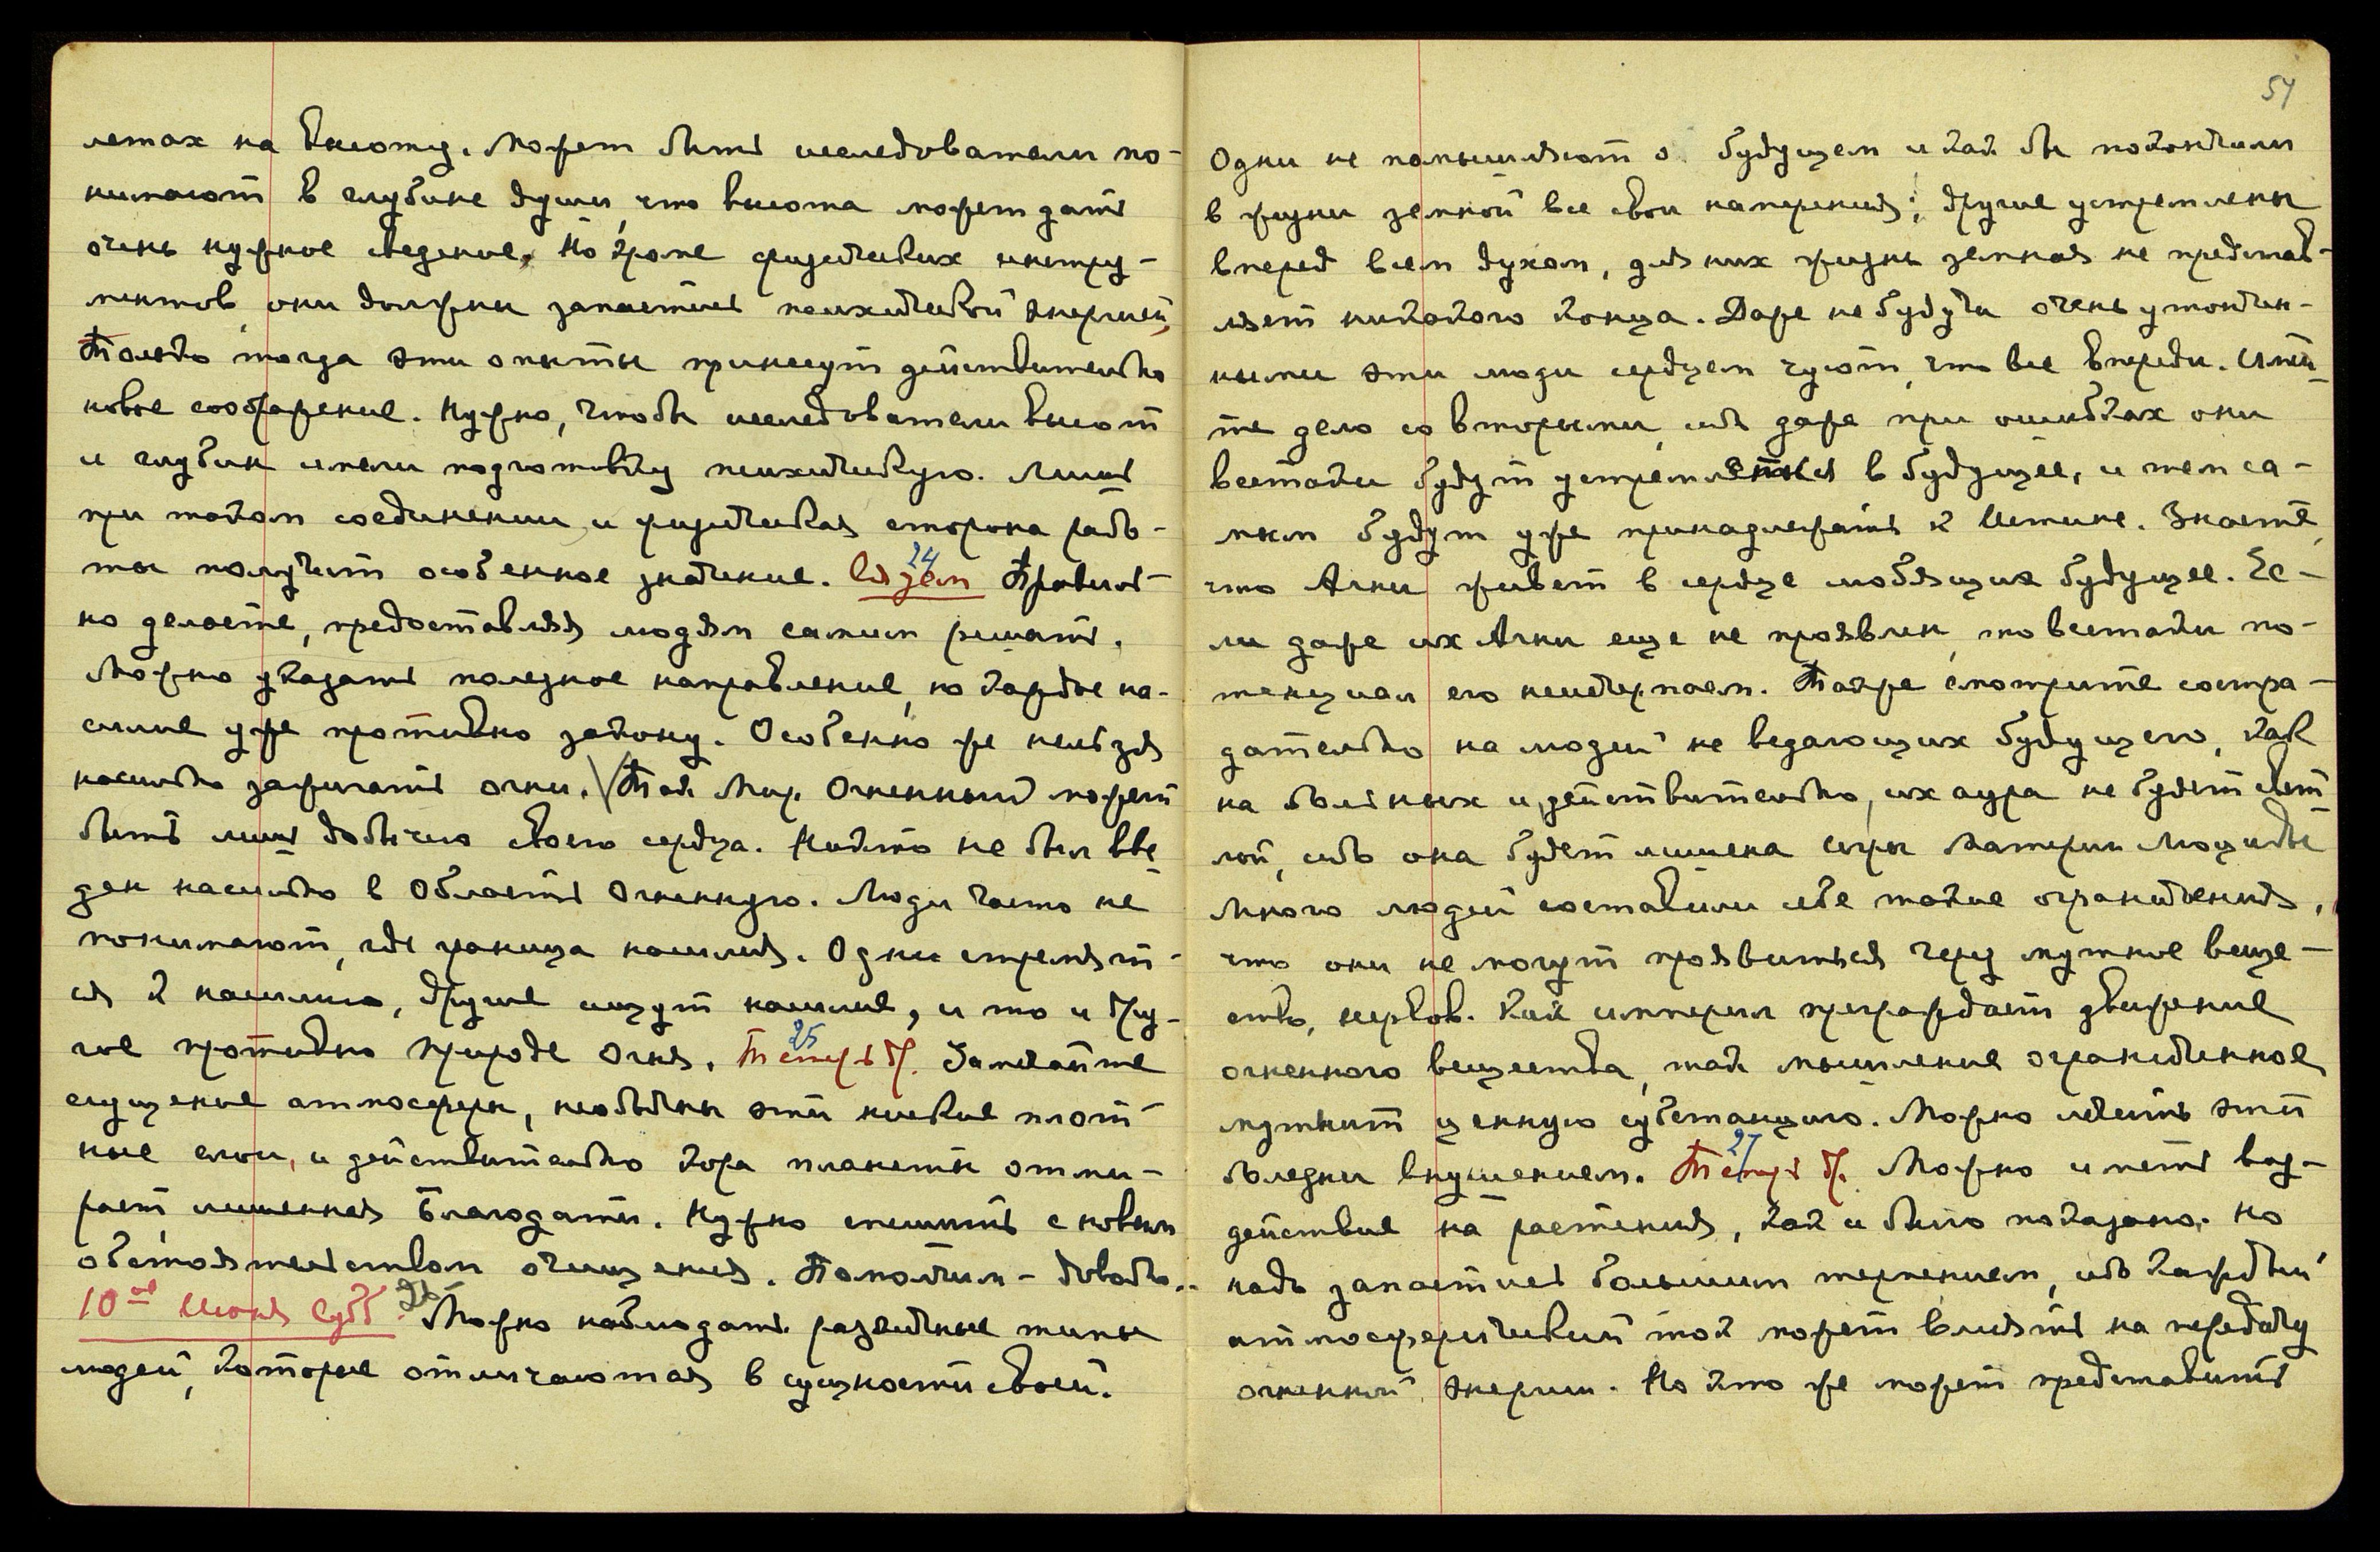 летах на высоту. Может быть исследователи по-
нимают в глубине души, что высота может дать
очень нужное сведение. Но кроме физических инстру-
ментов они должны запастись психической энергией.
Только тогда эти опыты принесут действительно
новое соображение. Нужно, чтобы исследователи высот
и глубин имели подготовку психическую. Лишь
при таком соединении и физическая сторона рабо-
ты получит особенное значение. 24 Правиль-
но делаете, предоставляя людям самим решать.
Можно указать полезное направление, но каждое на-
силие уже противно закону. Особенно же нельзя
насильно зажигать огни. Так Мир Огненный может
быть лишь добычею своего сердца. Никто не был вве-
ден насильно в Область Огненную. Люди часто не
понимают, где граница насилия. Одни стремят-
ся к насилию, другие ищут насилие, и то и дру-
гое противно природе Огня. 25 Теперь др. Замечайте
сгущение атмосферы, необычны эти низкие плот-
ные слои, и действительно кора планеты отми-
рает лишенная Благодати. Нужно спешить с новым
обстоятельством очищения. Помолчим – довольно.
10ое Июня Субб 26 Можно наблюдать различные типы
людей, которые отличаются в сущности своей.
54
Одни не помышляют о будущем и как бы покончили
в жизни земной все свои намерения; другие устремлены
вперед всем духом, для них жизнь земная не представ-
ляет никакого конца. Даже не будучи очень утончен-
ными эти люди сердцем чуют, что все впереди. Имей-
те дело со вторыми, ибо даже при ошибках они
всетаки будут устремляться в будущее, и тем са-
мым будут уже принадлежать к Истине. Знаете,
что Агни живет в сердце любящих будущее. Ес-
ли даже их Агни еще не проявлен, то всетаки по-
тенциал его неисчерпаем. Также смотрите состра-
дательно на людей не ведающих будущего, как
на больных и, действительно, их аура не будет свет-
лой, ибо она будет лишена Материи Люциды
Много людей составили себе такие ограничения,
что они не могут проявиться через мутное веще-
ство, нервов. Как империл преграждает движение
огненного вещества, так мышление ограниченное
мутнит ценную субстанцию. Можно лечить эти
болезни внушением. 27 Теперь др. Можно иметь воз-
действие на растения, как и было показано. Но
надо запастись большим терпением, ибо каждый
атмосферический ток может влиять на передачу
огненной энергии. Но кто же может представить